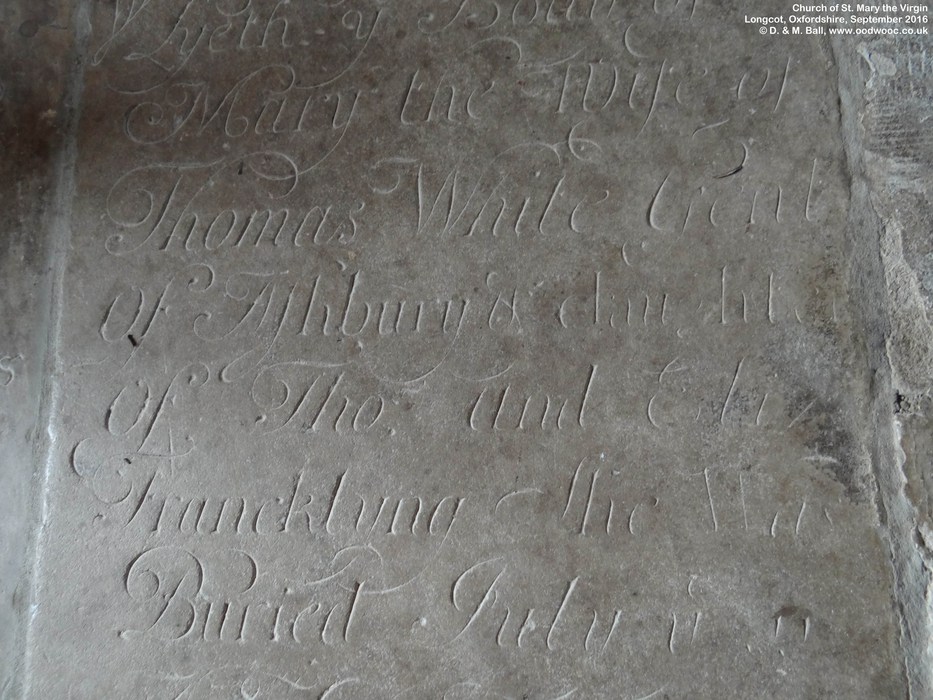 Church of St. Mary the Virgin
Longcot, Oxfordshire, September 2016
© D. & M. Ball, www.oodwooc.co.uk
Lyeth y Body of
Mary the Wife of
Thomas White Gent
Of Ashbury & daughter
Of Tho. and Eliz
Francklyng She Was
Buried July